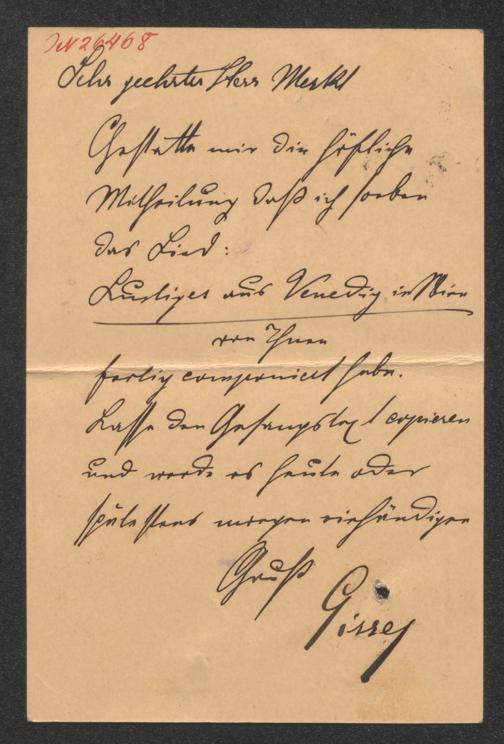 JN 26468
Sehr geehrter Herr Merkl
Gestatte mir die höfliche
Mittheilung daß ich soeben
das Lied:
Lustiges aus Venedig in Wien
von Ihnen
fertig componiert habe.
Lasse den Gesangstext copieren
und werde es heute oder
spätestens morgen einhändigen
Gruß